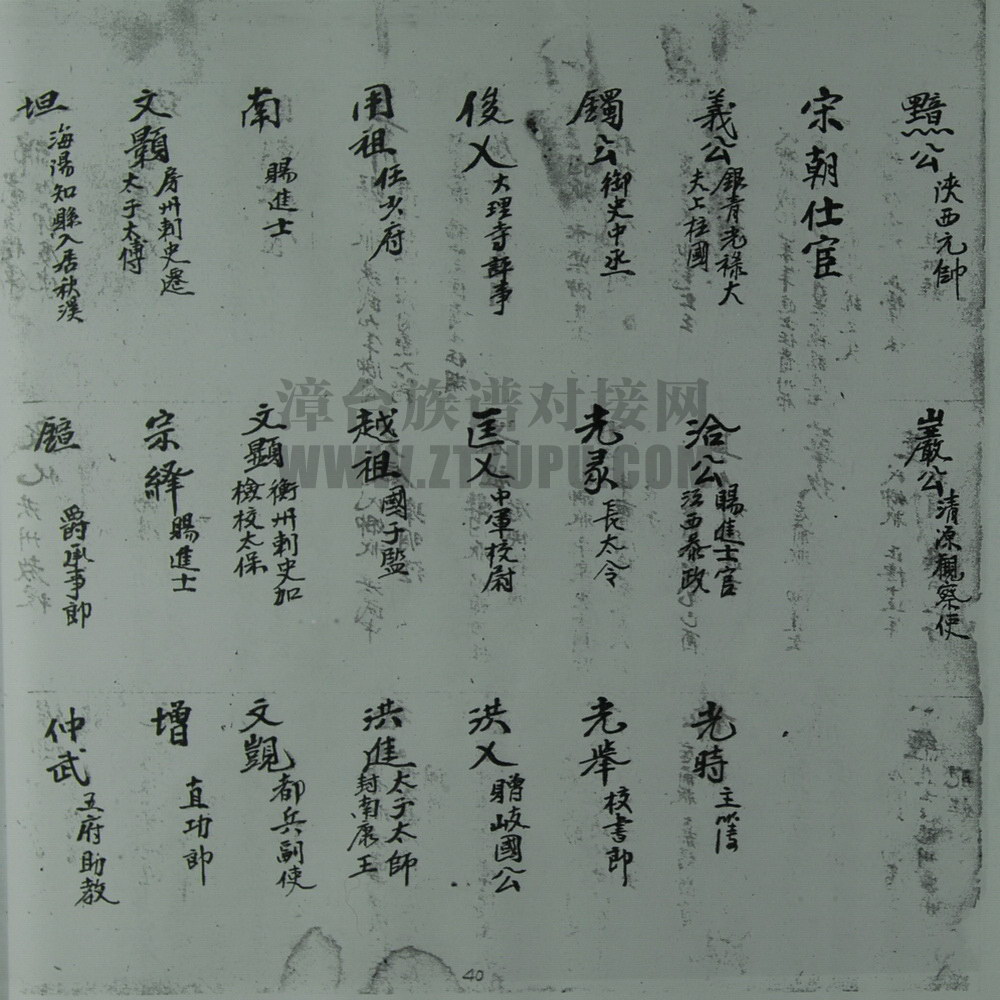 黯公 陝西元帥
巖公 清源觀察使
宋朝仕宦
義公 銀青光祿大夫上柱國
洽公 賜進士官江西泰政
光時 主簿
鐲公 御史中丞
光彔 長太令
光举 校書郎
俊乂 大理寺評事
匡乂 中軍校尉
洪乂 贈岐國公
用祖 任少府
越祖 國子監
洪進 太子太師封南康王
南 賜進士
文顯 衡州刺史加檢校太保
文覬 都兵嗣使
文顥 房州刺史遷太子太傅
宗繹 賜進士
增 直功郎
坦 海陽知縣入居秋溪
爵承事郎
仲武 王府助教
漳台族谱对接网
WWW.ZTZUPU.COM
40